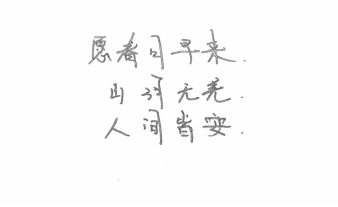 愿春日早来.
山河无恙.
人间皆安.